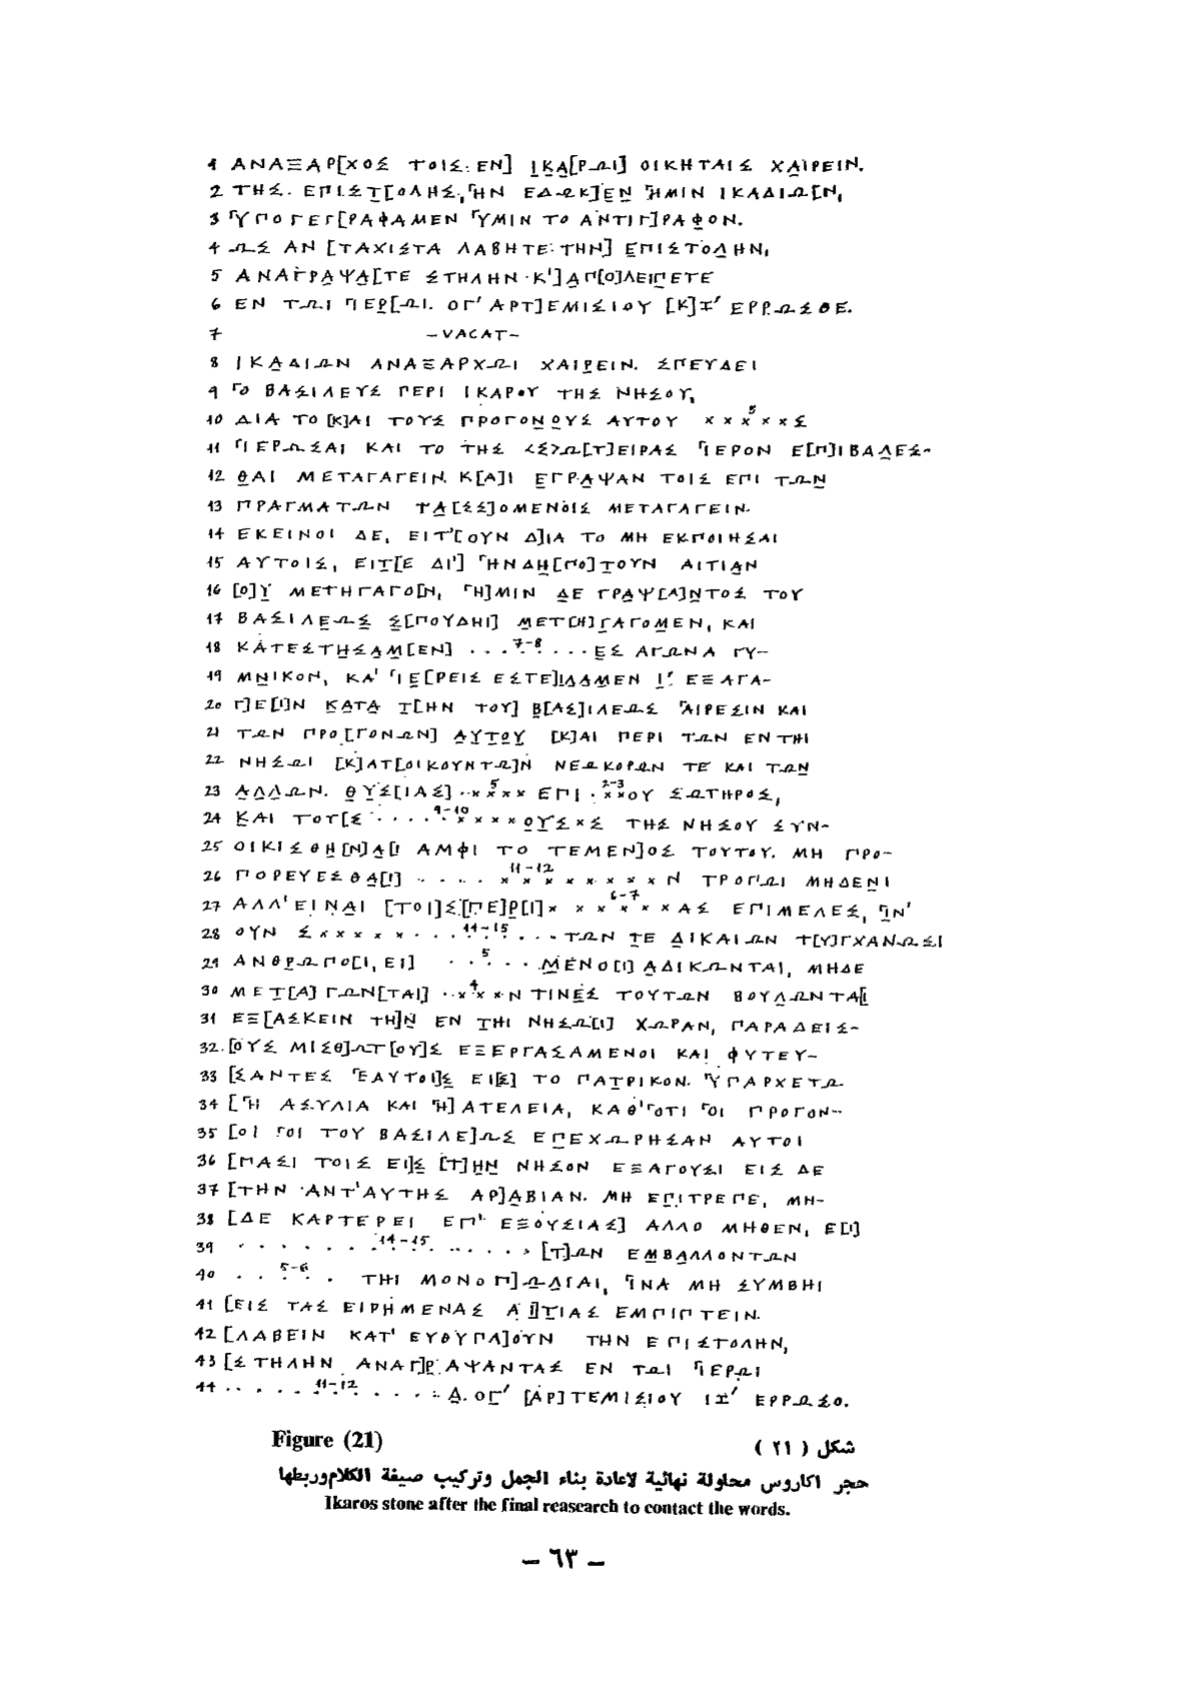 1 ΑΝΑΞΑΡ[ΧΟΣ ΤΟΙΣ. ΕΝ] ΙΚΑ[ΡΩΙ] ΟΙΚΗΤΑΙΣ ΧΑΙΡΕΙΝ.
2 ΤΗΣ. ΕΠΙΣΤ[ΟΛΗΣ, ῾ΗΝ ΕΔΩΚ]ΕΝ ῾ΗΜΙΝ ΙΚΑΔΙΩ[Ν,
3 ῾ΥΠΟΓΕΓ[ΡΑΦΑΜΕΝ ῾ΥΜΙΝ ΤΟ ΑΝΤΙΓ]ΡΑΦΟΝ.
4 ΩΣ ΑΝ [ΤΑΧΙΣΤΑ ΛΑΒΗΤΕ ΤΗΝ] ΕΠΙΣΤΟΛΗΝ,
5 ΑΝΑΓΡΑΨΑ[ΤΕ ΣΤΗΛΗΝ Κ'] ΑΠ[Ο]ΛΕΙΠΕΤΕ
6 ΕΝ ΤΩΙ ῾ΙΕΡ[ΩΙ. ΟΓ' ΑΡΤ]ΕΜΙΣΙΟΥ [Κ]Ι' ΕΡΡΩΣΘΕ.
7 –VACAT–
8 ΙΚΑΔΙΩΝ ΑΝΑΞΑΡΧΩΙ ΧΑΙΡΕΙΝ. ΣΠΕΥΔΕΙ
9 ῾Ο ΒΑΣΙΛΕΥΣ ΠΕΡΙ ΙΚΑΡΟΥ ΤΗΣ ΝΗΣΟΥ,
10 ΔΙΑ ΤΟ [Κ]ΑΙ ΤΟΥΣ ΠΡΟΓΟΝΟΥΣ ΑΥΤΟΥ x x x 5 x x x Σ
11 ῾ΙΕΡΩΣΑΙ ΚΑΙ ΤΟ ΤΗΣ <Σ>Ω[Τ]ΕΙΡΑΣ ῾ΙΕΡΟΝ Ε[Π]ΙΒΑΛΕΣ–
12 ΘΑΙ ΜΕΤΑΓΑΓΕΙΝ. Κ[Α]Ι ΕΓΡΑΨΑΝ ΤΟΙΣ ΕΠΙ ΤΩΝ
13 ΠΡΑΓΜΑΤΩΝ ΤΑ[ΣΣ]ΟΜΕΝΟΙΣ ΜΕΤΑΓΑΓΕΙΝ.
14 ΕΚΕΙΝΟΙ ΔΕ, ΕΙΤ'[ΟΥΝ Δ]ΙΑ ΤΟ ΜΗ ΕΚΠΟΙΗΣΑΙ
15 ΑΥΤΟΙΣ, ΕΙΤ[Ε ΔΙ'] ῾ΗΝΔΗ[ΠΟ]ΤΟΥΝ ΑΙΤΙΑΝ
16 [Ο]Υ ΜΕΤΗΓΑΓΟ[Ν, ῾Η]ΜΙΝ ΔΕ ΓΡΑΨ[Α]ΝΤΟΣ ΤΟΥ
17 ΒΑΣΙΛΕΩΣ Σ[ΠΟΥΔΗΙ] ΜΕΤ[Η]ΓΑΓΟΜΕΝ, ΚΑΙ
18 ΚΑΤΕΣΤΗΣΑΜ[ΕΝ] . . . 7–8 . . . ΕΣ ΑΓΩΝΑ ΓΥ–
19 ΜΝΙΚΟΝ, ΚΑ' ῾ΙΕ[ΡΕΙΣ ΕΣΤΕ]ΙΛΑΜΕΝ Ι' ΕΞΑΓΑ–
20 Γ]Ε[Ι]Ν ΚΑΤΑ Τ[ΗΝ ΤΟΥ] Β[ΑΣ]ΙΛΕΩΣ ῾ΑΙΡΕΣΙΝ ΚΑΙ
21 ΤΩΝ ΠΡΟ[ΓΟΝΩΝ] ΑΥΤΟΥ [Κ]ΑΙ ΠΕΡΙ ΤΩΝ ΕΝ ΤΗΙ
22 ΝΗΣΩΙ [Κ]ΑΤ[ΟΙΚΟΥΝΤΩ]Ν ΝΕΩΚΟΡΩΝ ΤΕ ΚΑΙ ΤΩΝ
23 ΑΛΛΩΝ. ΘΥΣ[ΙΑΣ] . . x 5 x x x ΕΠΙ . 2–3 x x ΟΥ ΣΩΤΗΡΟΣ,
24 ΚΑΙ ΤΟΥ[Σ . . . . . 9–10 x x x x ΟΥΣ x Σ ΤΗΣ ΝΗΣΟΥ ΣΥΝ–
25 ΟΙΚΙΣΘΗ[Ν]Α[Ι ΑΜΦΙ ΤΟ ΤΕΜΕΝ]ΟΣ ΤΟΥΤΟΥ. ΜΗ ΠΡΟ–
26 ΠΟΡΕΥΕΣΘΑ[Ι] . . . . 11–12 x x x x x x x x Ν ΤΡΟΠΩΙ ΜΗΔΕΝΙ
27 ΑΛΛ' ΕΙΝΑΙ [ΤΟΙ]Σ [ΠΕ]Ρ[Ι] x x x 6–7 x x x ΑΣ ΕΠΙΜΕΛΕΣ, ῾ΙΝ'
28 ΟΥΝ Σ x x x x x . . . 14–15 . . . ΤΩΝ ΤΕ ΔΙΚΑΙΩΝ Τ[Υ]ΓΧΑΝΩΣΙ
29 ΑΝΘΡΩΠΟ[Ι, ΕΙ] . . 5 . . . ΜΕΝΟ[Ι] ΑΔΙΚΩΝΤΑΙ, ΜΗΔΕ
30 ΜΕΤ[Α]ΓΩΝ[ΤΑΙ] . . x 4 x x Ν ΤΙΝΕΣ ΤΟΥΤΩΝ ΒΟΥΛΩΝΤΑ[Ι
31 ΕΞ[ΑΣΚΕΙΝ ΤΗ]Ν ΕΝ ΤΗΙ ΝΗΣΩ[Ι] ΧΩΡΑΝ, ΠΑΡΑΔΕΙΣ–
32. [ΟΥΣ ΜΙΣΘ]ΩΤ[ΟΥ]Σ ΕΞΕΡΓΑΣΑΜΕΝΟΙ ΚΑΙ ΦΥΤΕΥ–
33 [ΣΑΝΤΕΣ ῾ΕΑΥΤΟΙ]Σ ΕΙ[Σ] ΤΟ ΠΑΤΡΙΚΟΝ. ῾ΥΠΑΡΧΕΤΩ
34 [῾Η ΑΣΥΛΙΑ ΚΑΙ ῾Η] ΑΤΕΛΕΙΑ, ΚΑΘ'῾ΟΤΙ ῾ΟΙ ΠΡΟΓΟΝ–
35 [ΟΙ ῾ΟΙ ΤΟΥ ΒΑΣΙΛΕ]ΩΣ ΕΠΕΧΩΡΗΣΑΝ ΑΥΤΟΙ
36 [ΠΑΣΙ ΤΟΙΣ ΕΙ]Σ [Τ]ΗΝ ΝΗΣΟΝ ΕΞΑΓΟΥΣΙ ΕΙΣ ΔΕ
37 [ΤΗΝ ΑΝΤ'ΑΥΤΗΣ ΑΡ]ΑΒΙΑΝ. ΜΗ ΕΠΙΤΡΕΠΕ, ΜΗ–
38 [ΔΕ ΚΑΡΤΕΡΕΙ ΕΠ' ΕΞΟΥΣΙΑΣ] ΑΛΛΟ ΜΗΘΕΝ, Ε[Ι]
39 . . . . . . . 14–15 . . . . . . [Τ]ΩΝ ΕΜΒΑΛΛΟΝΤΩΝ
40 . . 5–6 . . ΤΗΙ ΜΟΝΟΠ]ΩΛΙΑΙ, ῾ΙΝΑ ΜΗ ΣΥΜΒΗΙ
41 [ΕΙΣ ΤΑΣ ΕΙΡΗΜΕΝΑΣ Α]ΙΤΙΑΣ ΕΜΠΙΠΤΕΙΝ.
42 [ΛΑΒΕΙΝ ΚΑΤ' ΕΥΘΥΠΛ]ΟΥΝ ΤΗΝ ΕΠΙΣΤΟΛΗΝ,
43 [ΣΤΗΛΗΝ ΑΝΑΓ]ΡΑΨΑΝΤΑΣ ΕΝ ΤΩΙ ῾ΙΕΡΩΙ
44 . . . . . 11–12 . . . . . Δ. ΟΓ' [ΑΡ]ΤΕΜΙΣΙΟΥ ΙΙ' ΕΡΡΩΣΟ.
Figure (21) شكل ( ٢١ )
حجر اكاروس محاولة نهائية لاعادة بناء الجمل وتركيب صيغة الكلام وربطها
Ikaros stone after the final reasearch to contact the words.
– ٦٣ –